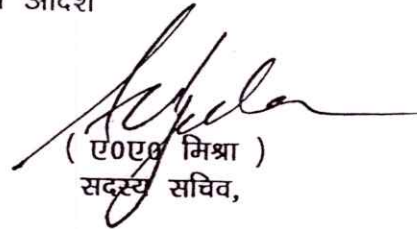 आदेश
( ए0ए0 मिश्रा )
सदस्य सचिव,